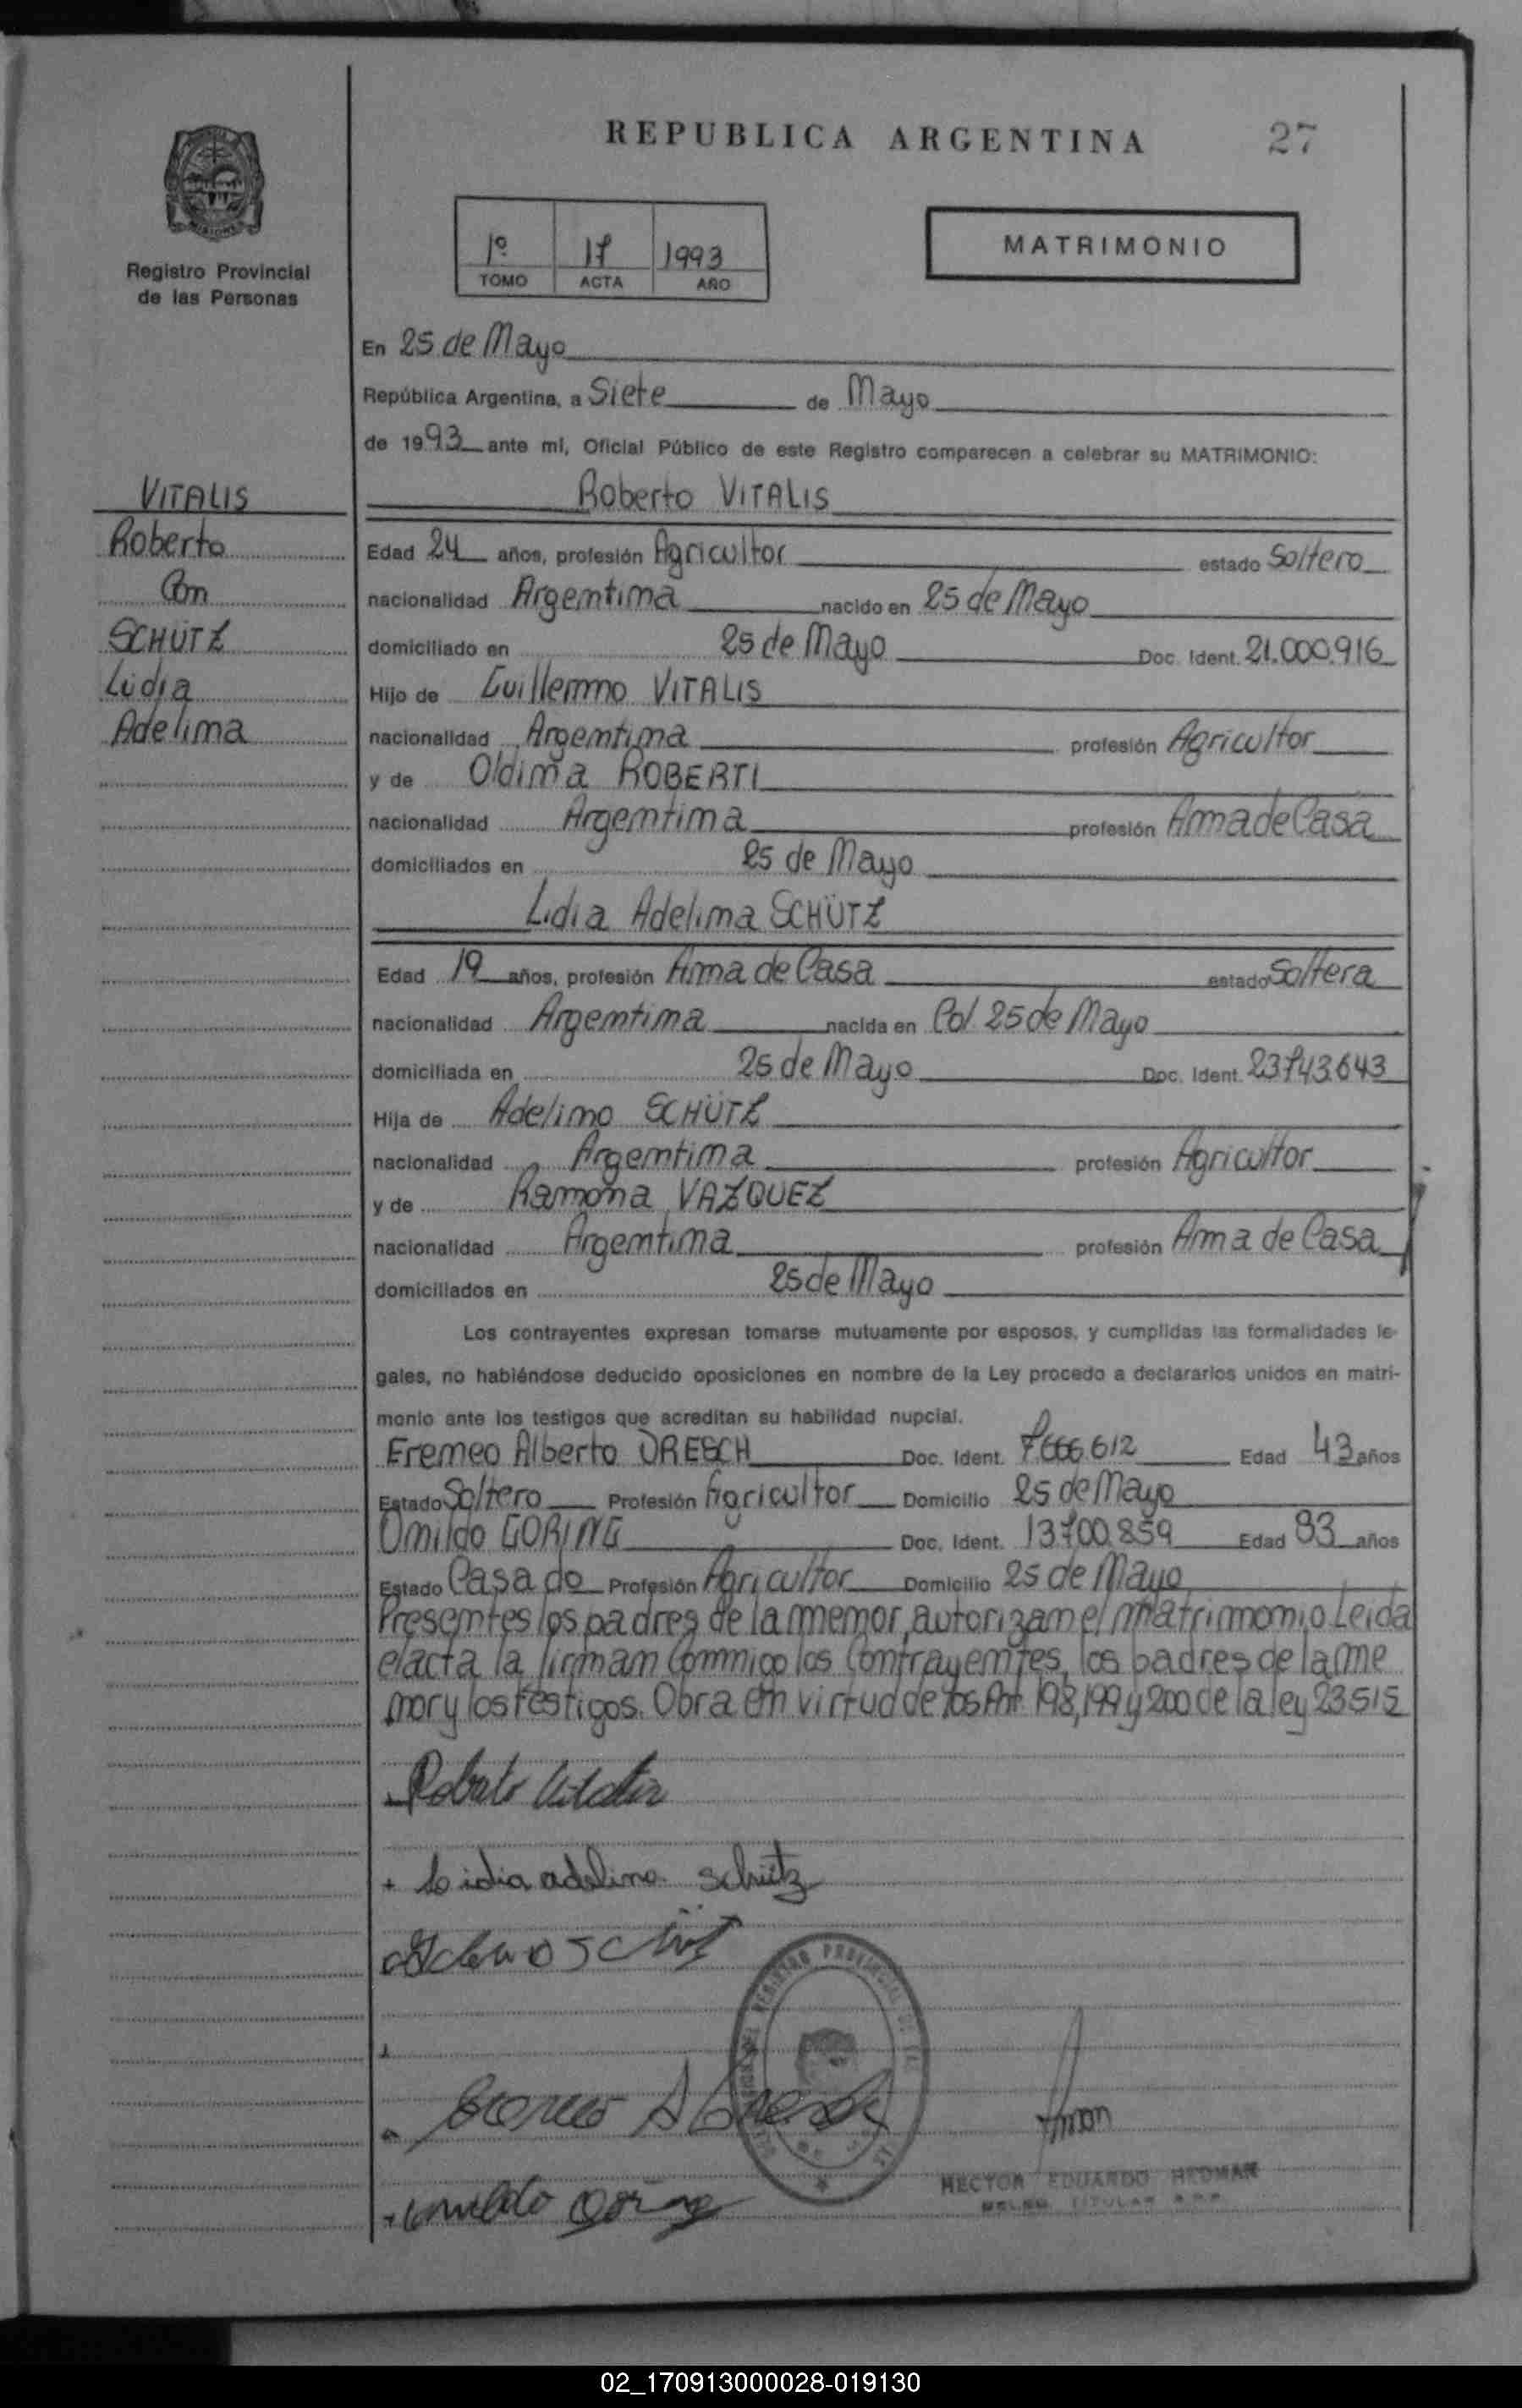 REPUBLICA ARGENTINA
27
Registro Provincial
de las Personas
1º 17 1993
TOMO ACTA AÑO
MATRIMONIO
En 25 de Mayo
República Argentina, a Siete de Mayo
de 1993 ante mí, Oficial Público de este Registro comparecen a celebrar su MATRIMONIO:
VITALIS
Roberto
Con
SCHÜTZ
Lidia
Adelina
Roberto VITALIS
Edad 24 años, profesión Agricultor estado Soltero
nacionalidad Argentina nacido en 25 de Mayo
domiciliado en 25 de Mayo Doc. Ident. 21.000.916
Hijo de Guillermo VITALIS
nacionalidad Argentina profesión Agricultor
y de Oldina ROBERTI
nacionalidad Argentina profesión Ama de Casa
domiciliados en 25 de Mayo
Lidia Adelina SCHÜTZ
Edad 19 años, profesión Ama de Casa estado Soltera
nacionalidad Argentina nacida en Col 25 de Mayo
domiciliada en 25 de Mayo Doc. Ident. 23743.643
Hija de Adelino SCHÜTZ
nacionalidad Argentina profesión Agricultor
y de Ramona VAZQUEZ
nacionalidad Argentina profesión Ama de Casa
domiciliados en 25 de Mayo
Los contrayentes expresan tomarse mutuamente por esposos, y cumplidas las formalidades le-
gales, no habiéndose deducido oposiciones en nombre de la Ley procedo a declararlos unidos en matri-
monio ante los testigos que acreditan su habilidad nupcial.
Eremeo Alberto DRESCH Doc. Ident. 7.666.612 Edad 43 años
Estado Soltero Profesión Agricultor Domicilio 25 de Mayo
Omildo GORING Doc. Ident. 13700.859 Edad 33 años
Estado Casado Profesión Agricultor Domicilio 25 de Mayo
Presentes los padres de la menor, autorizan el matrimonio. Leida
el acta la firman Conmigo los Contrayentes, los padres de la me
nor y los testigos. Obra en virtud de los Art. 198, 199 y 200 de la ley 23515
Roberto Vitalis
+ Lidia adelina Schütz
HECTOR EDUARDO HEDMAN
02_170913000028-019130